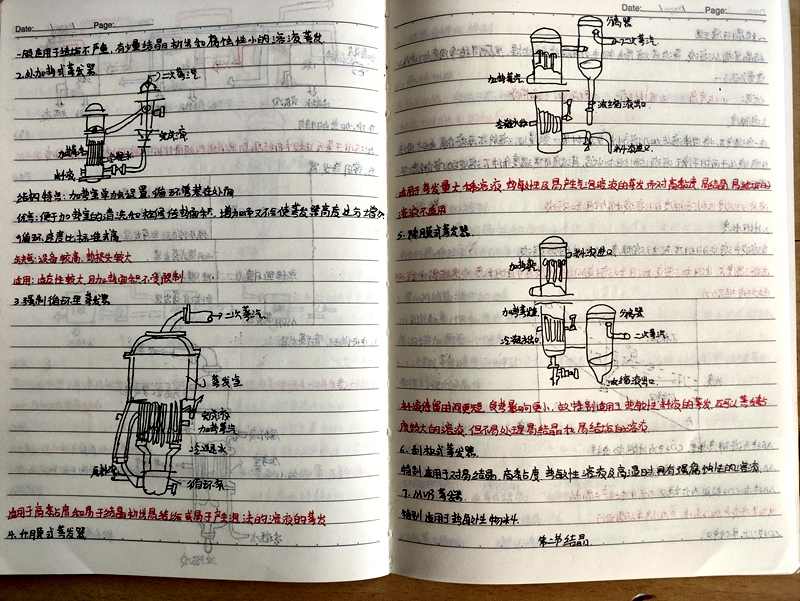 Date: Page:
一般适用于结垢不严重,有少量结晶析出和腐蚀性小的溶液蒸发
2.外加热式蒸发器
二次蒸汽
完成液
加热蒸汽
冷凝水
料液
结构特点:加热室单独设置,循环管装在外面
优点:便于加热室的清洗和
缺点:设备较高,热损失较大
适用:适应性较大,且加热面积不受限制
3.强制循环型蒸发器
二次蒸汽
蒸发室
完成液
加热蒸汽
冷凝水
循环泵
适用于高黏度和易于结晶析出易结垢或易于产生泡沫的溶液的蒸发
4.升膜式蒸发器
Date: Page:
分离器
二次蒸汽
加热蒸汽
浓缩液出口
冷凝水
料液进口
适用于蒸发量大 热敏性及易产生气泡溶液的蒸发,而对高黏度,易结晶,易结垢的
溶液不适用
5.降膜式蒸发器
料液进口
加热蒸汽
分离器
冷凝水出口
二次蒸汽
浓缩液出口
料液停留时间更短,受热影响更小,故特别适用于热敏性料液的蒸发,
度较大的溶液,但不易处理易结晶和易结垢的溶液
6.刮板式蒸发器
特别适用于对易结晶,高黏度,热敏性溶液及高温时具有强腐蚀性的溶液
7.MVR蒸发器
特别适用于热敏性物料.
第二节 结晶